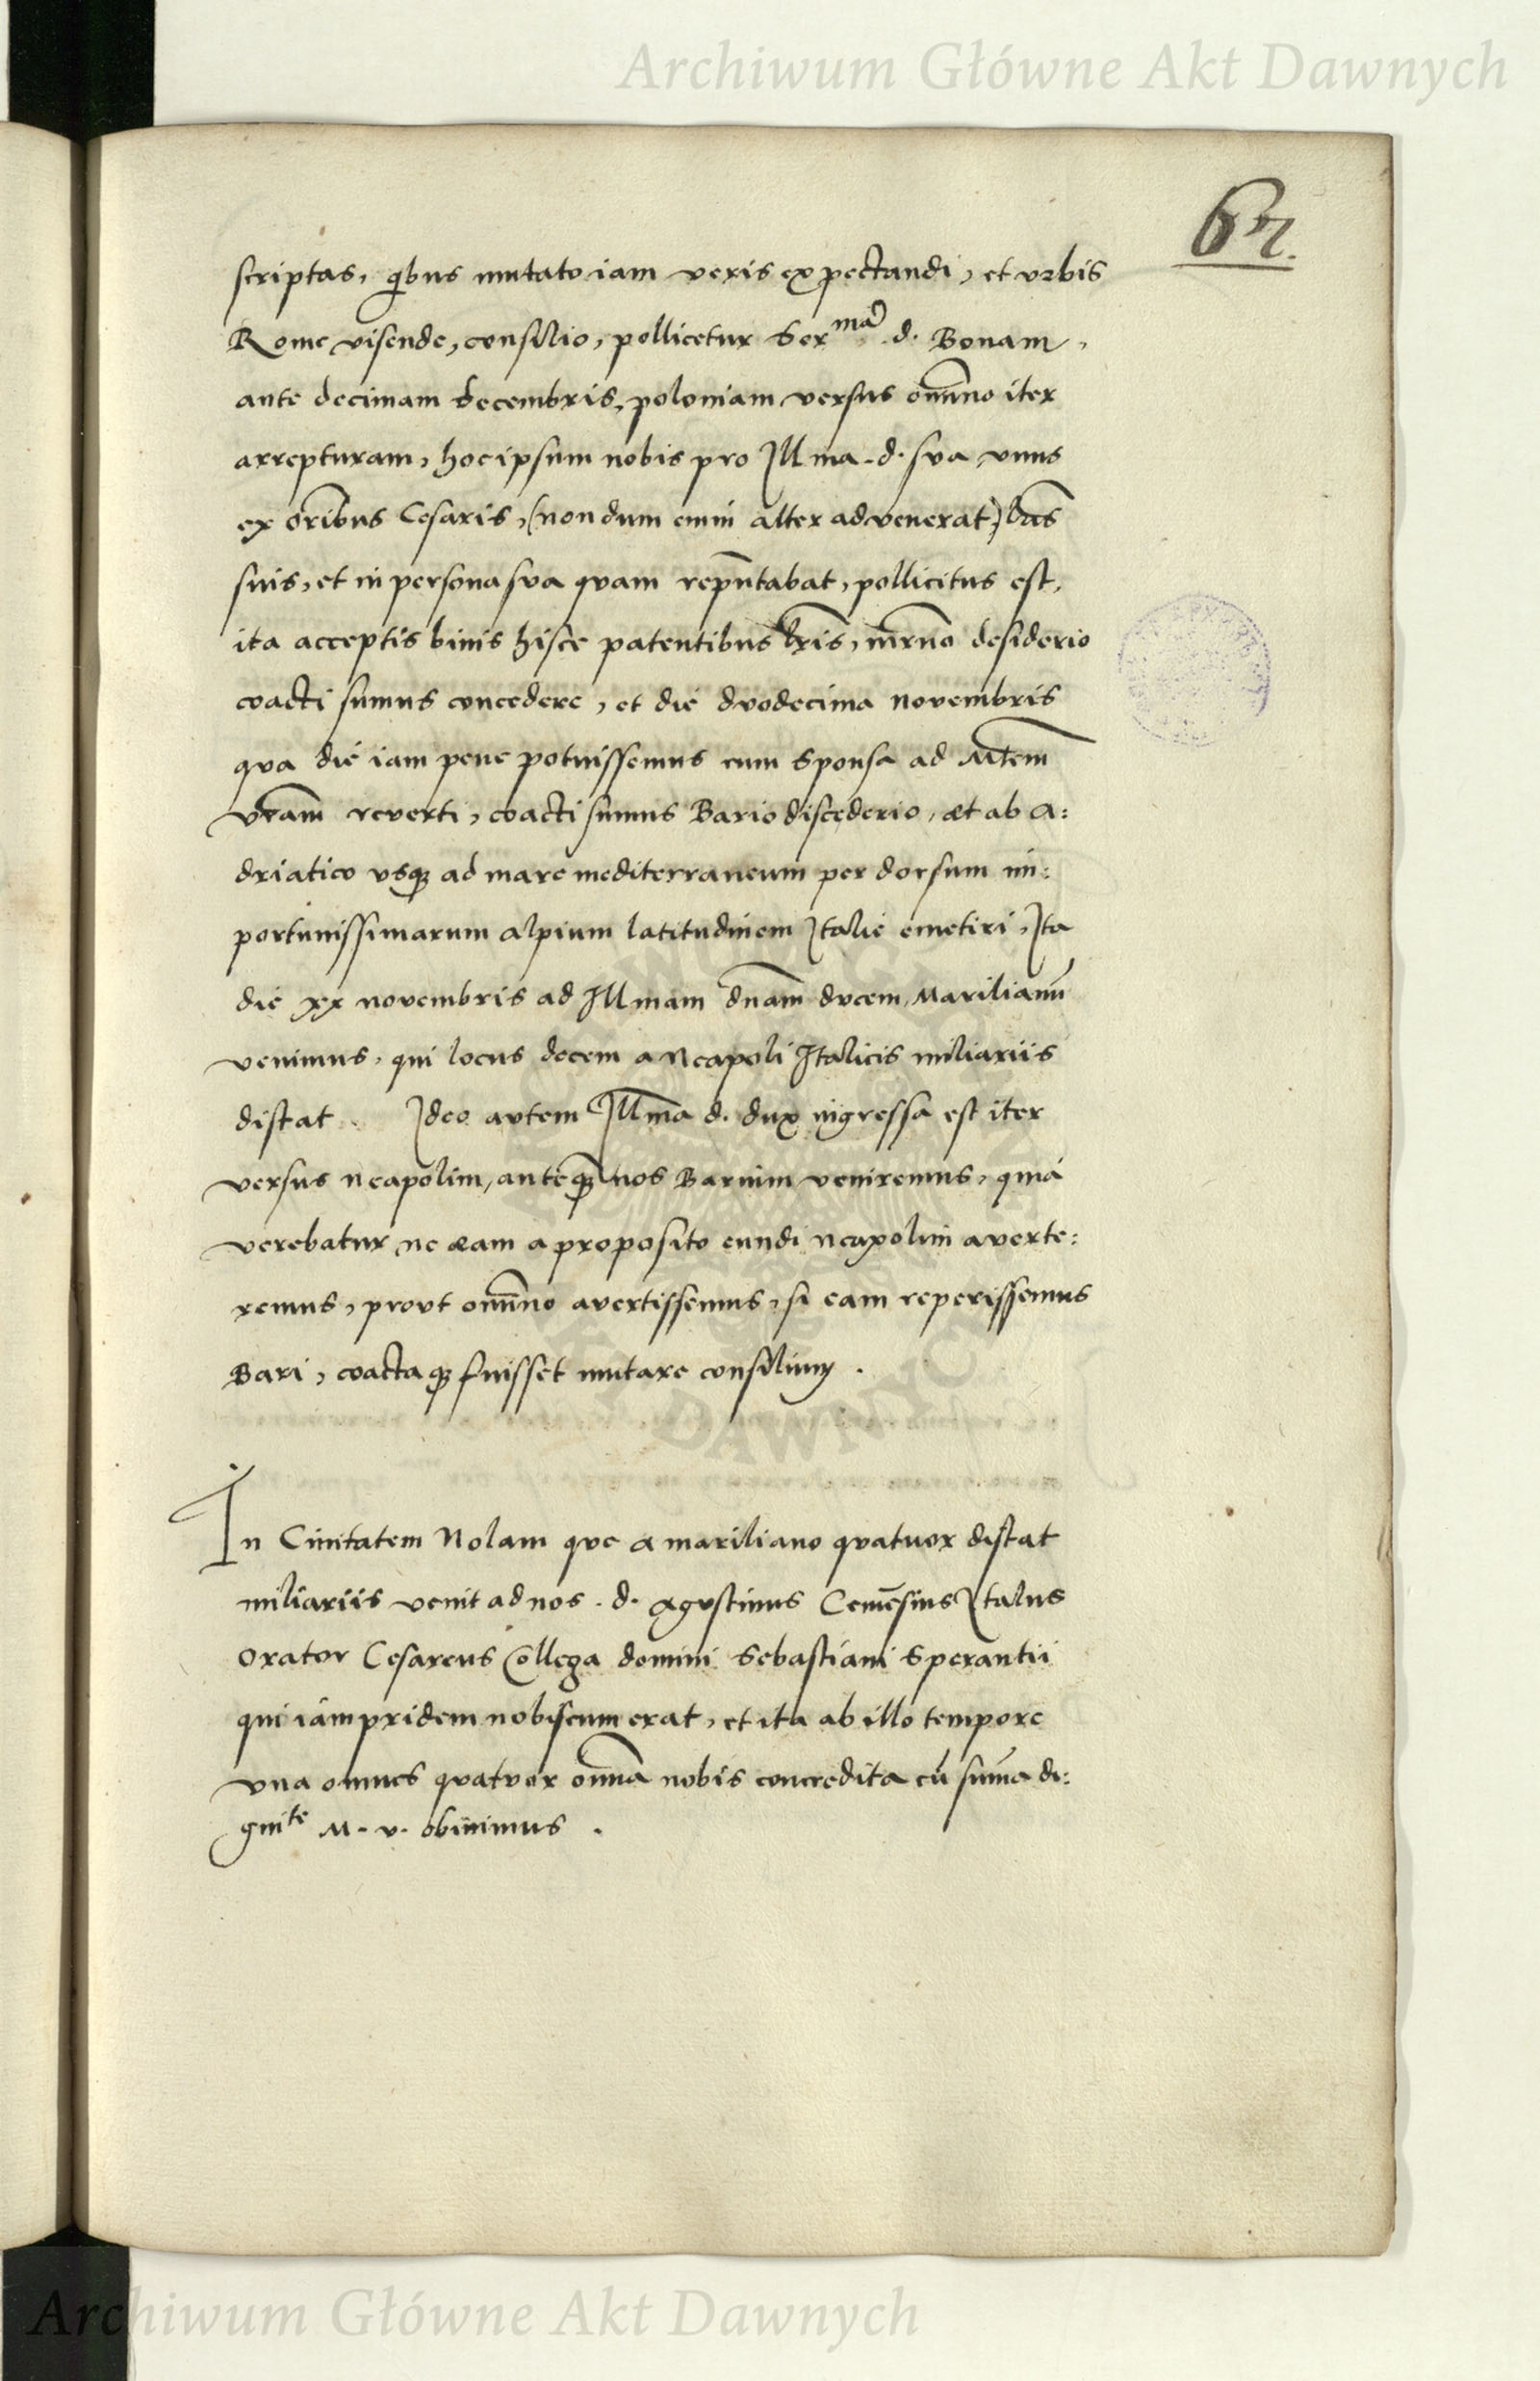 Archiwum Główne Akt Dawnych
67.
scriptas, qibus mutato iam veris expectandi, et vrbis
Rome visende, consilio, pollicetur Ser^ma d. Bonam,
ante decimam decembris, poloniam versus omnino iter
arrepturam, hoc ipsum nobis pro Illma. d. sua vnus
ex oribus Cesaris, (non dum enim alter advenerat)
suis, et in persona sua quam repntabat, pollicitus est,
ita acceptis binis hisce patentibus lris, desiderio
coacti sumus concedere, et die duodecima novembris
qua die iam pene potuissemus cum sponsa ad Mtem
vram reverti, coacti sumus Bario discederio, et ab A:
driatico vsq; ad mare mediterraneum per dorsum im:
portunissimarum alpium latitudinem Italie emetiri, Ita
die xx novembris ad Illmam dnam ducem Marilianu
venimus, qui locus decem a Neapoli Italicis miliariis
distat. Ideo autem Illma d. dux ingressa est iter
versus neapolim, anteq nos Barium veniremus, quia
verebatur ne eam a proposito eundi neapolim averte:
remus, prout omnino avertissemus, si eam reperissemus
Bari, coactaq; fuisset mutare consilium.
In Civitatem Nolam que a mariliano quatuor distat
miliariis venit ad nos. d. Agustinus Italus
orator Cesareus Collega domini Sebastiani Sperantii
qui iam pridem nobiscum erat, et ita ab illo tempore
vna omnes quatuor omnia nobis concredita cu suma di:
gni^te M. v. obivimus.
Archiwum Główne Akt Dawnych